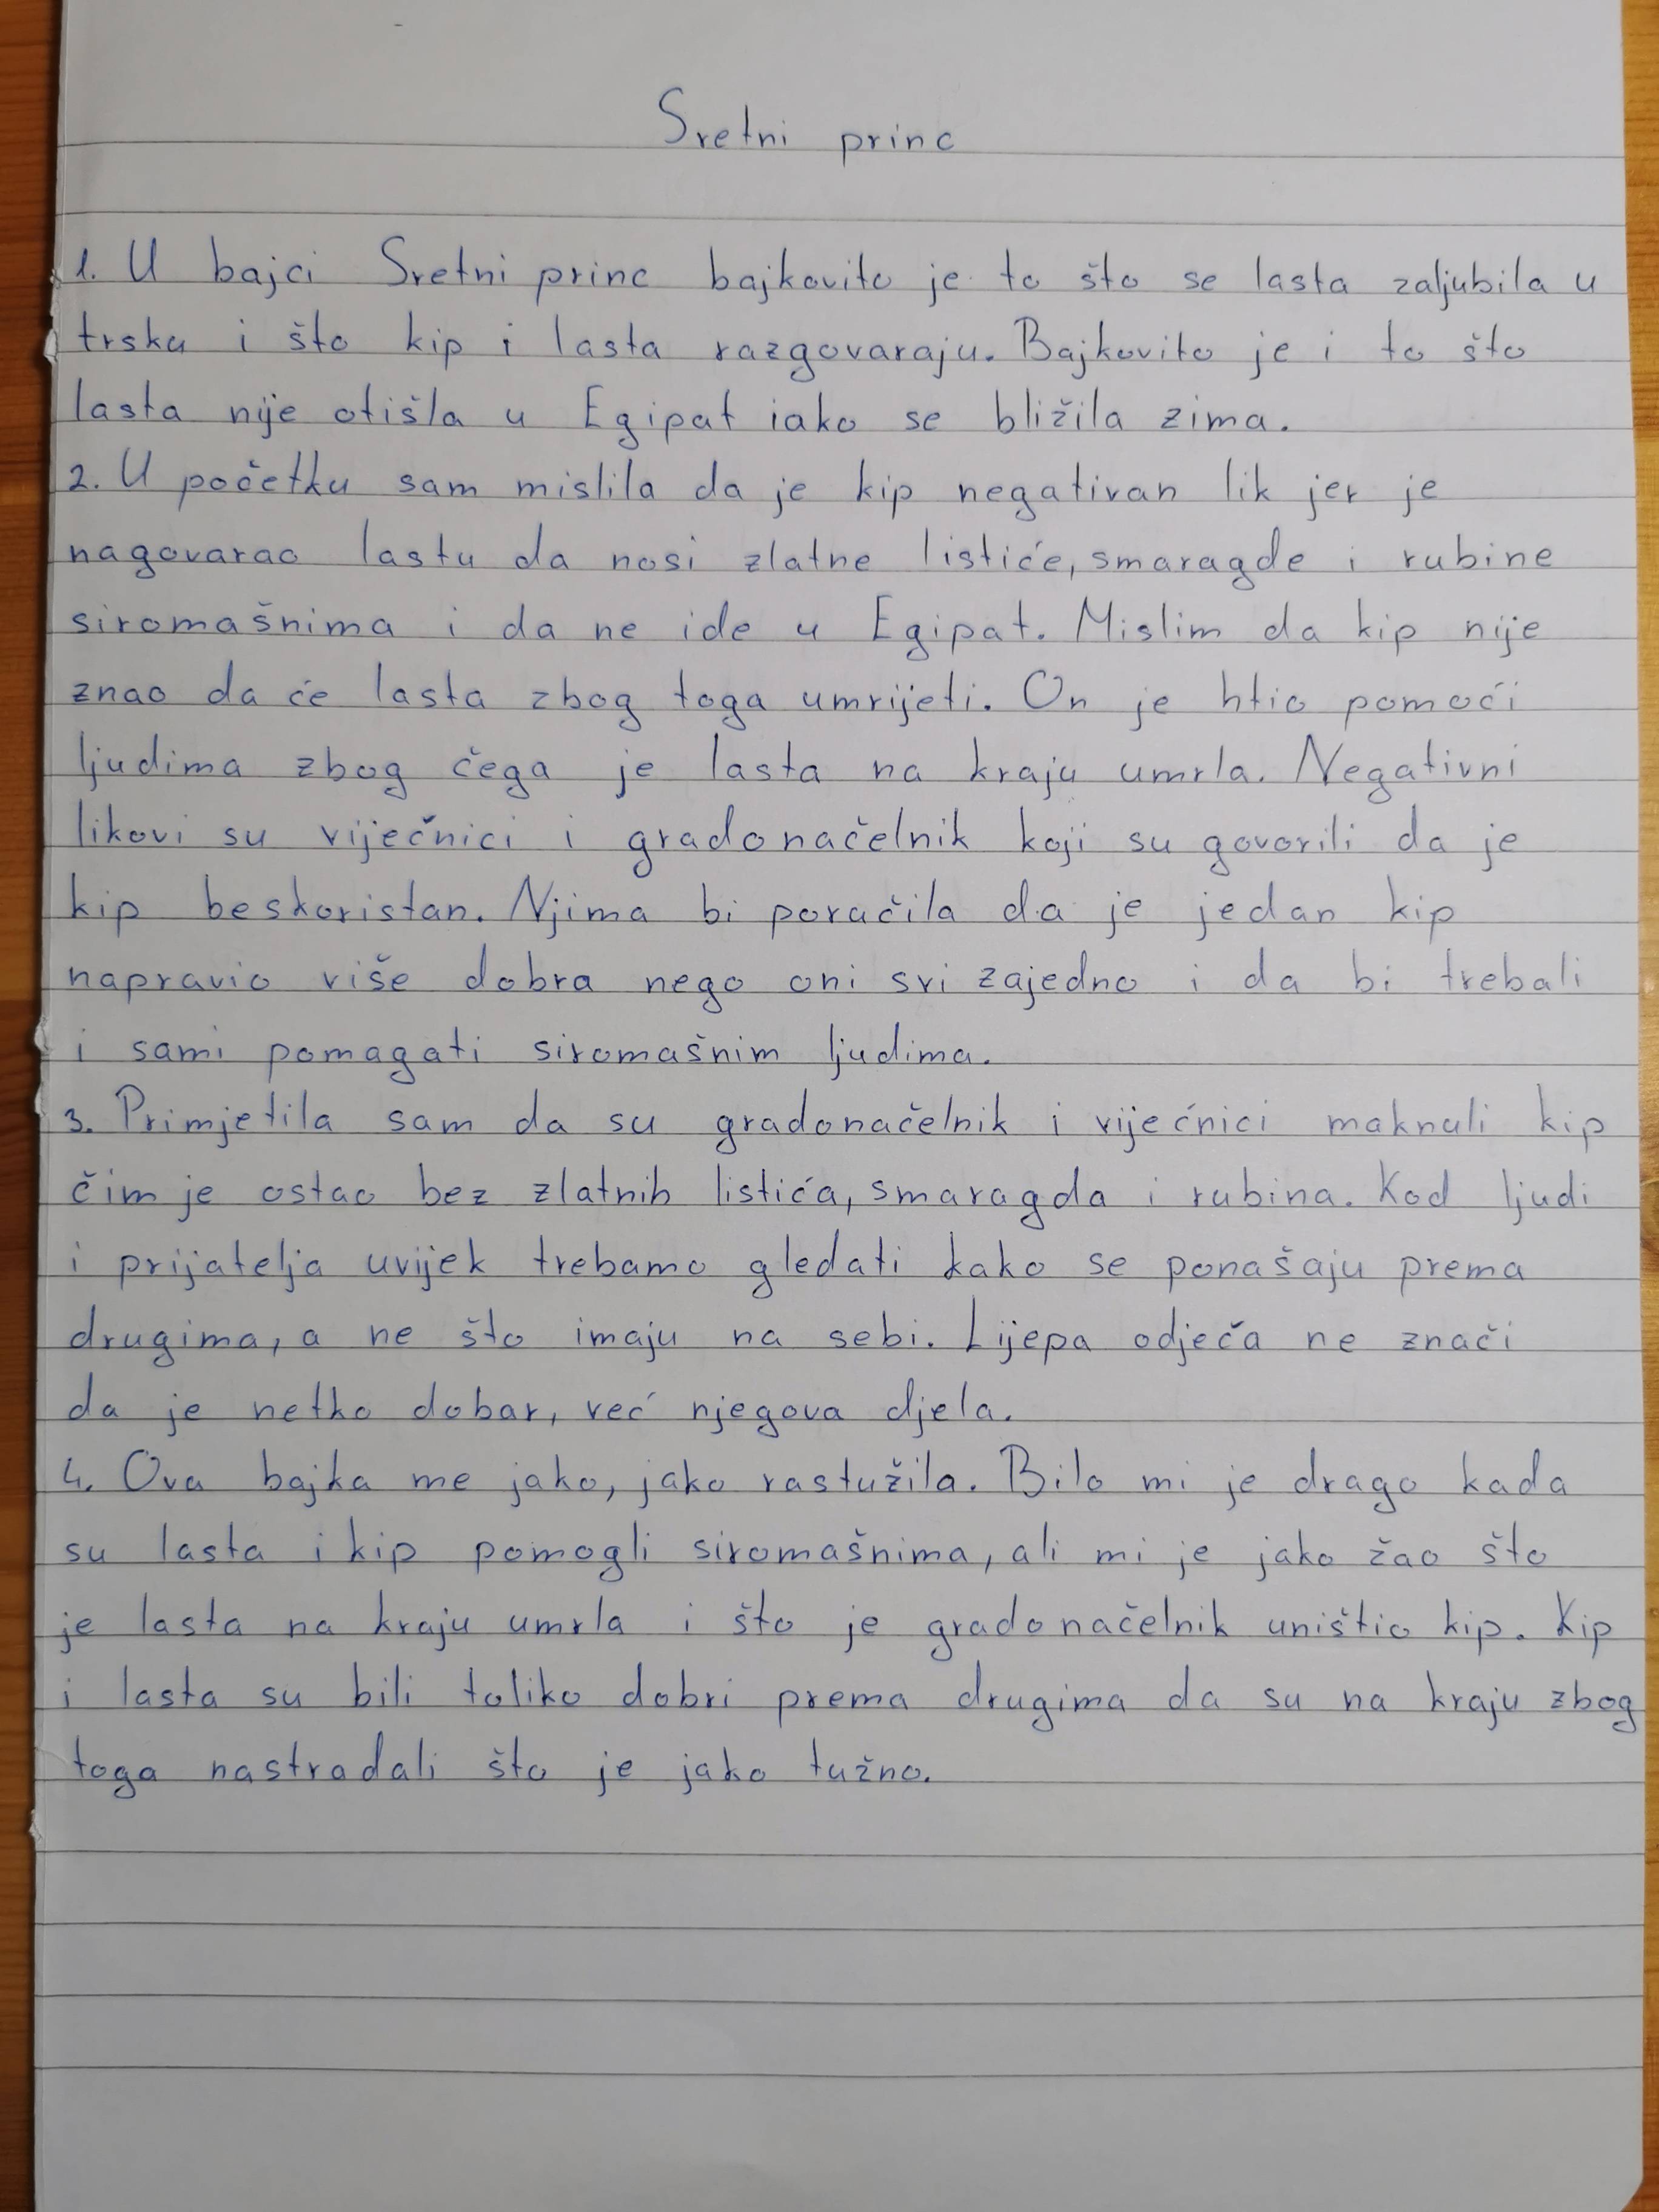 Sretni princ
1. U bajci Sretni princ bajkovito je to što se lasta zaljubila u
trsku i što kip i lasta razgovaraju. Bajkovito je i to što
lasta nije otišla u Egipat iako se bližila zima.
2. U početku sam mislila da je kip negativan lik jer je
nagovarao lastu da nosi zlatne listiće, smaragde i rubine
siromašnima i da ne ide u Egipat. Mislim da kip nije
znao da će lasta zbog toga umrijeti. On je htio pomoći
ljudima zbog čega je lasta na kraju umrla. Negativni
likovi su viječnici i gradonačelnik koji su govorili da je
kip beskoristan. Njima bi poručila da je jedan kip
napravio više dobra nego oni svi zajedno i da bi trebali
i sami pomagati siromašnim ljudima.
3. Primjetila sam da su gradonačelnik i vijećnici maknuli kip
čim je ostao bez zlatnih listića, smaragda i rubina. Kod ljudi
i prijatelja uvijek trebamo gledati kako se ponašaju prema
drugima, a ne što imaju na sebi. Lijepa odječa ne znači
da je netko dobar, već njegova djela.
4. Ova bajka me jako, jako rastužila. Bilo mi je drago kada
su lasta i kip pomogli siromašnima, ali mi je jako žao što
je lasta na kraju umrla i što je gradonačelnik uništio kip. Kip
i lasta su bili toliko dobri prema drugima da su na kraju zbog
toga nastradali što je jako tužno.